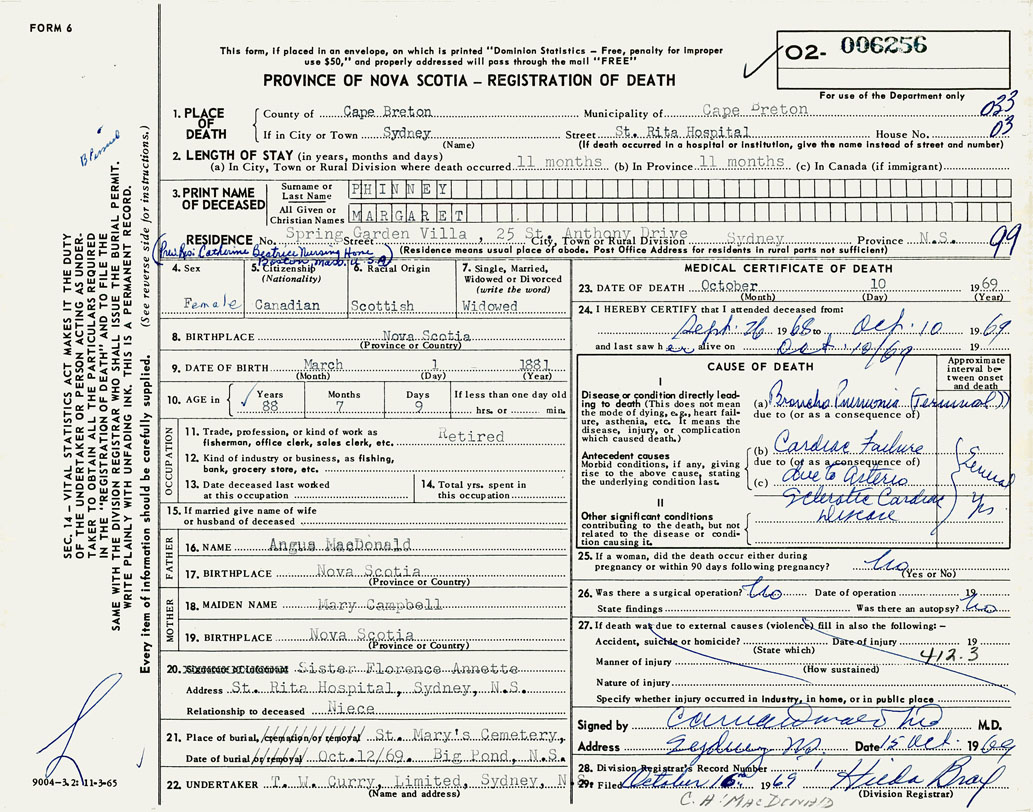 FORM 6
This form, if placed in an envelope, on which is printed "Dominion Statistics – Free, penalty for improper
use $50," and properly addressed will pass through the mail "FREE"
PROVINCE OF NOVA SCOTIA – REGISTRATION OF DEATH
O2- 006256
For use of the Department only
033
03
1. PLACE OF DEATH
County of Cape Breton Municipality of Cape Breton
If in City or Town Sydney Street St. Rita Hospital House No.
(Name) (If death occurred in a hospital or institution, give the name instead of street and number)
2. LENGTH OF STAY (in years, months and days)
(a) In City, Town or Rural Division where death occurred 11 months (b) In Province 11 months (c) In Canada (if immigrant)
3. PRINT NAME OF DECEASED
Surname or Last Name PHINNEY
All Given or Christian Names MARGARET
RESIDENCE No. Spring Garden Villa, 25 St. Anthony Drive Street City, Town or Rural Division Sydney Province N.S.
(Residence means usual place of abode. Post Office Address for residents in rural parts not sufficient)
99
(Prev. Resi: Catherine Beatrice Nursing Home
Boston, Mass. U.S.A)
4. Sex
Female
5. Citizenship
(Nationality)
Canadian
6. Racial Origin
Scottish
7. Single, Married,
Widowed or Divorced
(write the word)
Widowed
8. BIRTHPLACE Nova Scotia
(Province or Country)
9. DATE OF BIRTH March 1 1881
(Month) (Day) (Year)
10. AGE in Years Months Days If less than one day old
88 7 9 hrs. or min.
OCCUPATION
11. Trade, profession, or kind of work as
fisherman, office clerk, sales clerk, etc. Retired
12. Kind of industry or business, as fishing,
bank, grocery store, etc.
13. Date deceased last worked
at this occupation
14. Total yrs. spent in
this occupation
15. If married give name of wife
or husband of deceased
FATHER
16. NAME Angus MacDonald
17. BIRTHPLACE Nova Scotia
(Province or Country)
MOTHER
18. MAIDEN NAME Mary Campbell
19. BIRTHPLACE Nova Scotia
(Province or Country)
20. Signature of Informant Sister Florence Annette
Address St. Rita Hospital, Sydney, N.S.
Relationship to deceased Niece
21. Place of burial, cremation or removal St. Mary's Cemetery,
Date of burial or removal Oct.12/69. Big Pond, N.S.
22. UNDERTAKER T. W. Curry, Limited, Sydney, N.S.
(Name and address)
MEDICAL CERTIFICATE OF DEATH
23. DATE OF DEATH October 10 1969
(Month) (Day) (Year)
24. I HEREBY CERTIFY that I attended deceased from:
Sept. 26 1968 to Oct. 10 1969
and last saw her alive on Oct 10/69 19
CAUSE OF DEATH
Approximate interval between onset and death
I
Disease or condition directly leading
to death (This does not mean
the mode of dying, e.g., heart failure,
asthenia, etc. It means the
disease, injury, or complication
which caused death.)
(a) Broncho Pneumonia (Terminal)
due to (or as a consequence of)
Antecedent causes
Morbid conditions, if any, giving
rise to the above cause, stating
the underlying condition last.
(b) Cardiac Failure
due to (or as a consequence of)
(c) due to Arterio
Sclerotic Cardiac
Disease
General
yrs
II
Other significant conditions
contributing to the death, but not
related to the disease or condition
causing it.
25. If a woman, did the death occur either during
pregnancy or within 90 days following pregnancy? No
(Yes or No)
26. Was there a surgical operation? No Date of operation 19
State findings Was there an autopsy? No
27. If death was due to external causes (violence) fill in also the following: –
Accident, suicide or homicide? Date of injury 19
(State which)
412.3
Manner of injury
(How sustained)
Nature of injury
Specify whether injury occurred in industry, in home, or in public place
Signed by M.D.
Address Sydney N.S. Date 15 Oct. 1969
28. Division Registrar's Record Number
29. Filed October 16 1969 Hilda Bray
(Division Registrar)
C. A. MACDONALD
SEC. 14 – VITAL STATISTICS ACT MAKES IT THE DUTY
OF THE UNDERTAKER OR PERSON ACTING AS UNDERTAKER
TO OBTAIN ALL THE PARTICULARS REQUIRED
IN THE "REGISTRATION OF DEATH" AND TO FILE THE
SAME WITH THE DIVISION REGISTRAR WHO SHALL ISSUE THE BURIAL PERMIT.
WRITE PLAINLY WITH UNFADING INK. THIS IS A PERMANENT RECORD.
Every item of information should be carefully supplied. (See reverse side for instructions.)
9004–3.2: 11-3-65